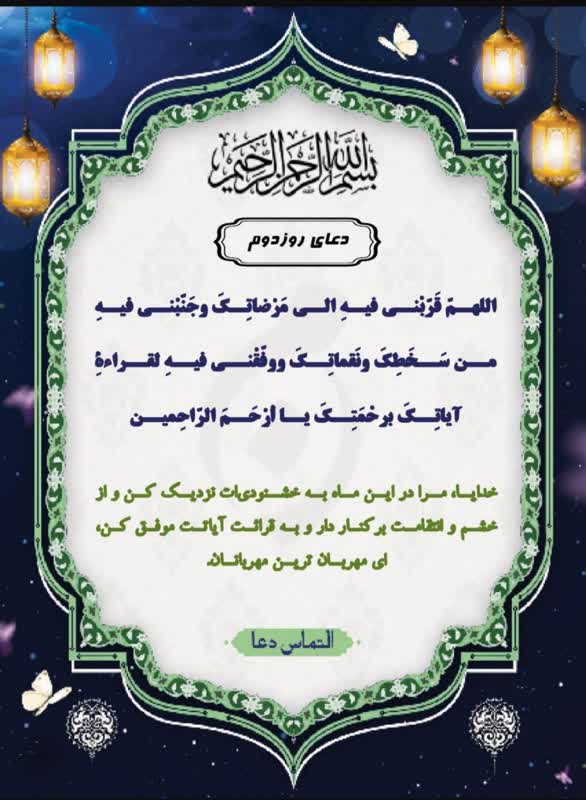 بسم الله الرحمن الرحیم
دعای روز دوم
اللهمّ قَرّبْنی فیهِ الی مَرْضاتِکَ وجَنّبْنی فیهِ
من سَخَطِکَ ونَقماتِکَ ووفّقْنی فیهِ لقراءةِ
آیاتِکَ برحْمَتِکَ یا أرْحَمَ الرّاحِمین
خدایا، مرا در این ماه به خشنودی‌ات نزدیک کن و از
خشم و انتقامت برکنار دار و به قرائت آیاتت موفق کن،
ای مهربان ترین مهربانان.
التماس دعا